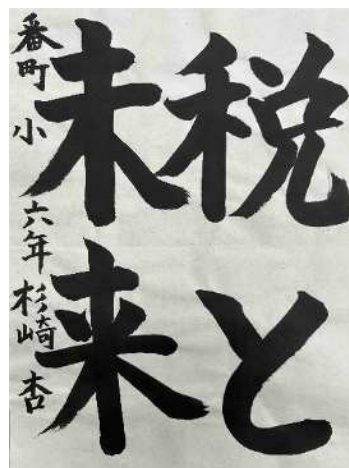 税と
未来
番町小六年杉崎杏